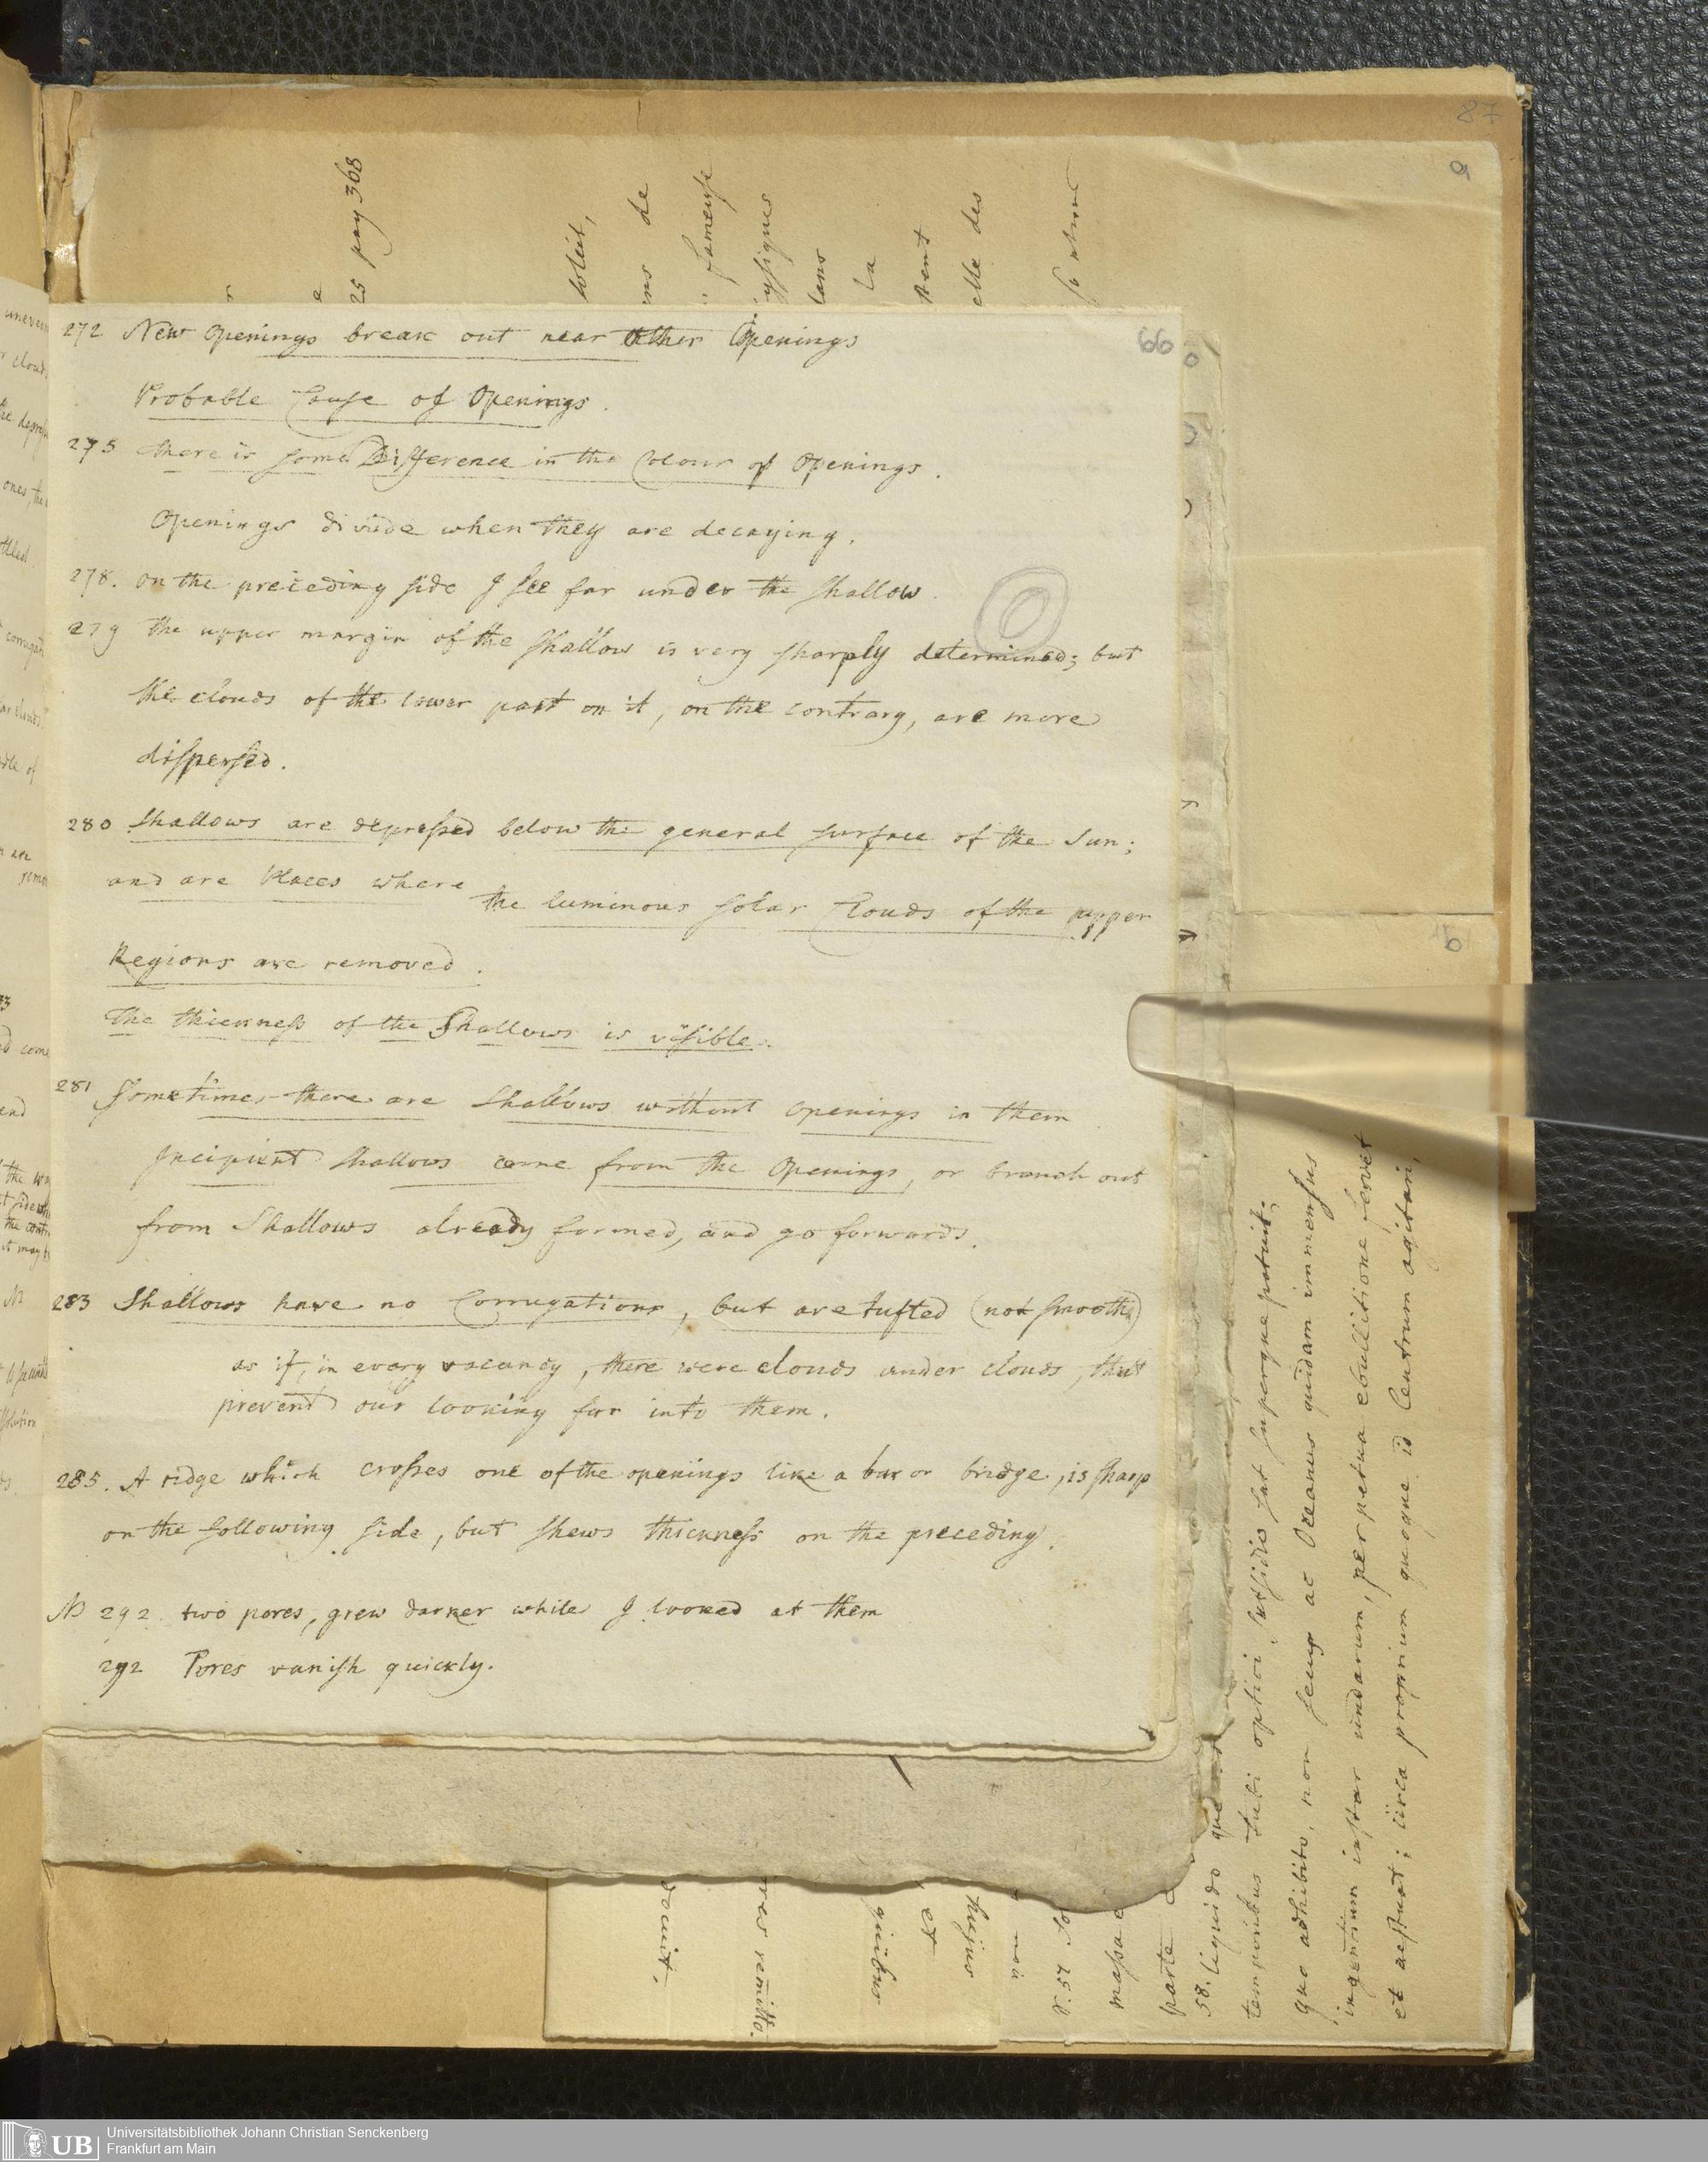 87
9
25 pag 368
soleil,
de
fameuse
la
elle des
66
272 New Openings break out near other Openings
Probable Cause of Openings.
275 there is some Difference in the Colour of Openings.
Openings divide when they are decaying.
278. on the preceding side I see far under the shallow.
279 the upper margin of the shallow is very sharply determined; but
the clouds of the lower part on it, on the contrary, are more
dispersed.
280 Shallows are depressed below the general surface of the Sun;
and are Places where
the luminous solar Clouds of the upper
Regions are removed.
The thickness of the Shallows is visible.
281 Sometimes there are Shallows without openings in them
Incipient Shallows come from the Openings, or branch out
from Shallows already formed, and go forwards.
283 Shallows have no Corrugations, but are tufted (not smooth)
as if, in every vacancy, there were clouds under clouds, that
prevent our looking far into them.
285. A ridge which crosses one of the openings like a bar or bridge, is sharp
on the following side, but shews thickness on the preceding.
NB 292. two pores, grew darker while I looked at them
292 Pores vanish quickly.
remitto.
quibus
et
hujus
non
massa
parte
58. liquido
temporibus tubi optici subsidio sat superque patuit;
quo adhibito, non secus ac Oceanus quidam immensus
ingentium instar undarum, perpetua ebullitione fervet
et aestuat; circa proprium quoque id Centrum agitari,
UB Universitätsbibliothek Johann Christian Senckenberg
Frankfurt am Main